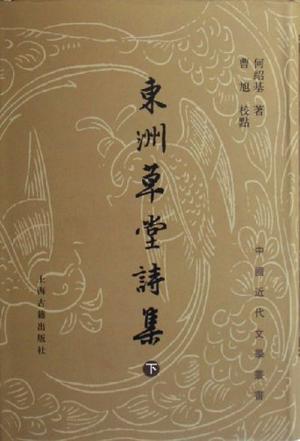 何紹基 著
曹旭 校點
東洲草堂詩集
下
中國近代文學叢書
上海古籍出版社